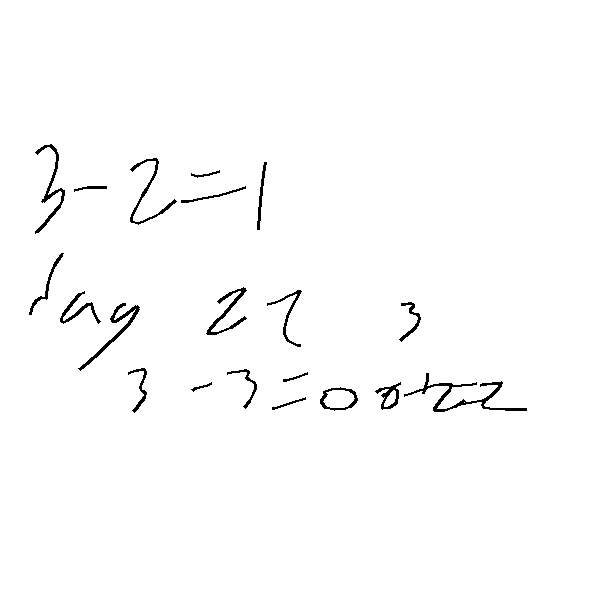 3-2=1
day 22 3
3-3=0 0+2=2